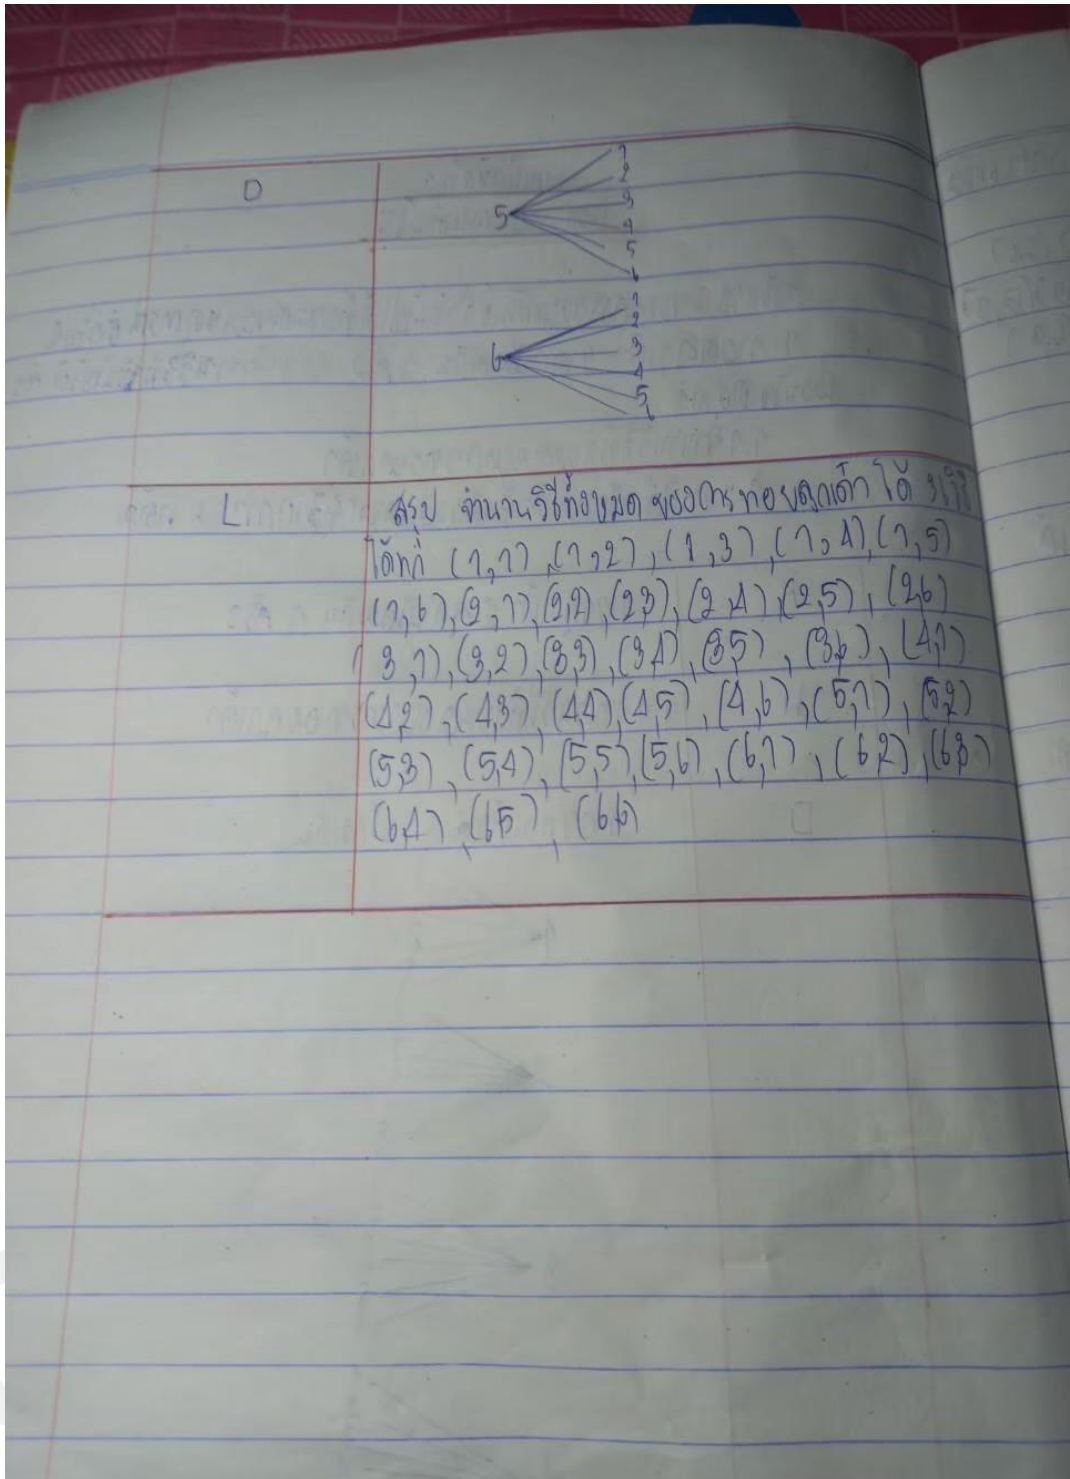 D
5
1
2
3
4
5
6
6
1
2
3
4
5
6
L
สรุป จำนวนวิธีทั้งหมดของการทอยลูกเต๋า ได้
ได้แก่ (1,1), (1,2), (1,3), (1,4), (1,5)
(1,6), (2,1), (2,2), (2,3), (2,4), (2,5), (2,6)
(3,1), (3,2), (3,3), (3,4), (3,5), (3,6), (4,1)
(4,2), (4,3), (4,4), (4,5), (4,6), (5,1), (5,2)
(5,3), (5,4), (5,5), (5,6), (6,1), (6,2), (6,3)
(6,4), (6,5), (6,6)